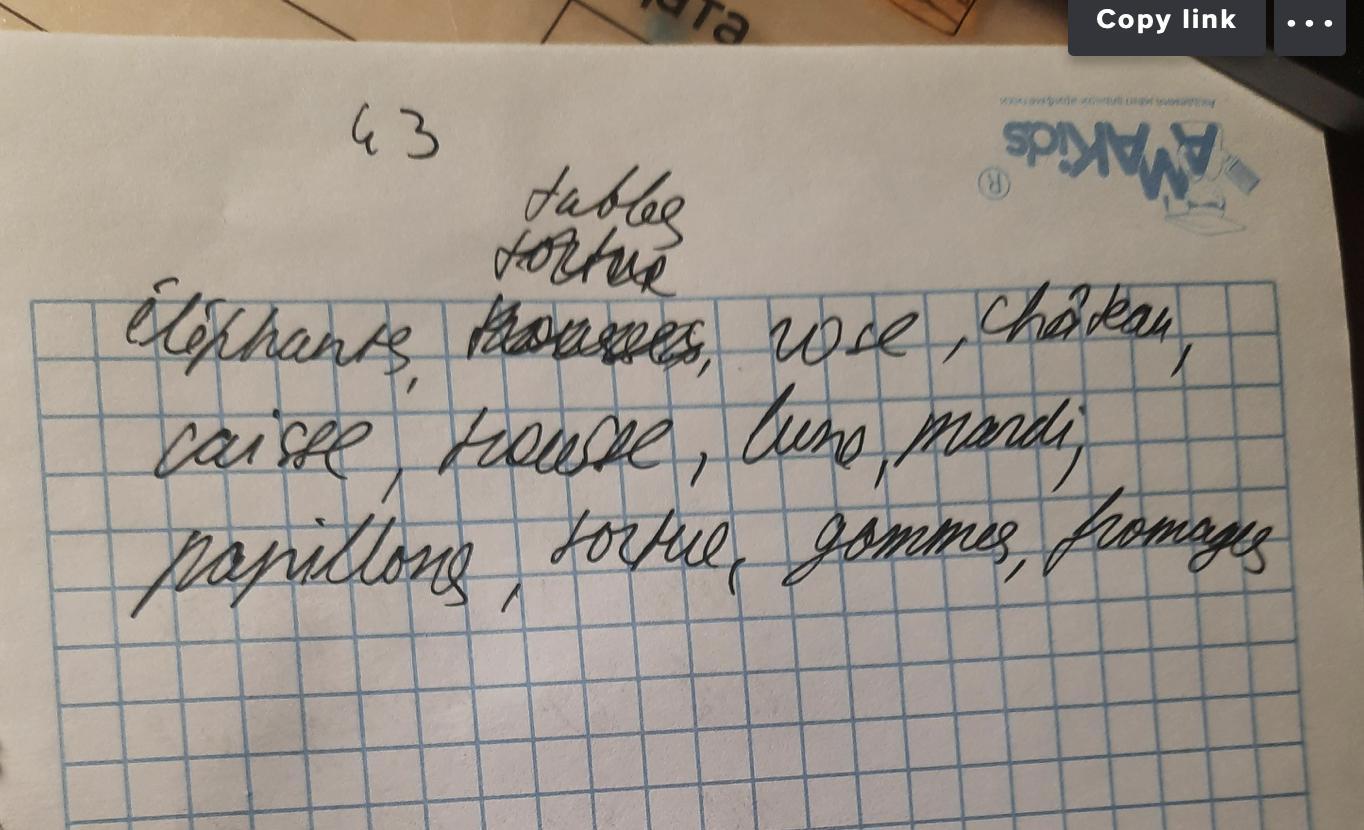 Copy link
ата
AMAKids
®
43
tables
tortue
éléphants, trousses, rose, château,
caisse, trousse, lune, mardi,
papillons, tortue, gommes, fromages